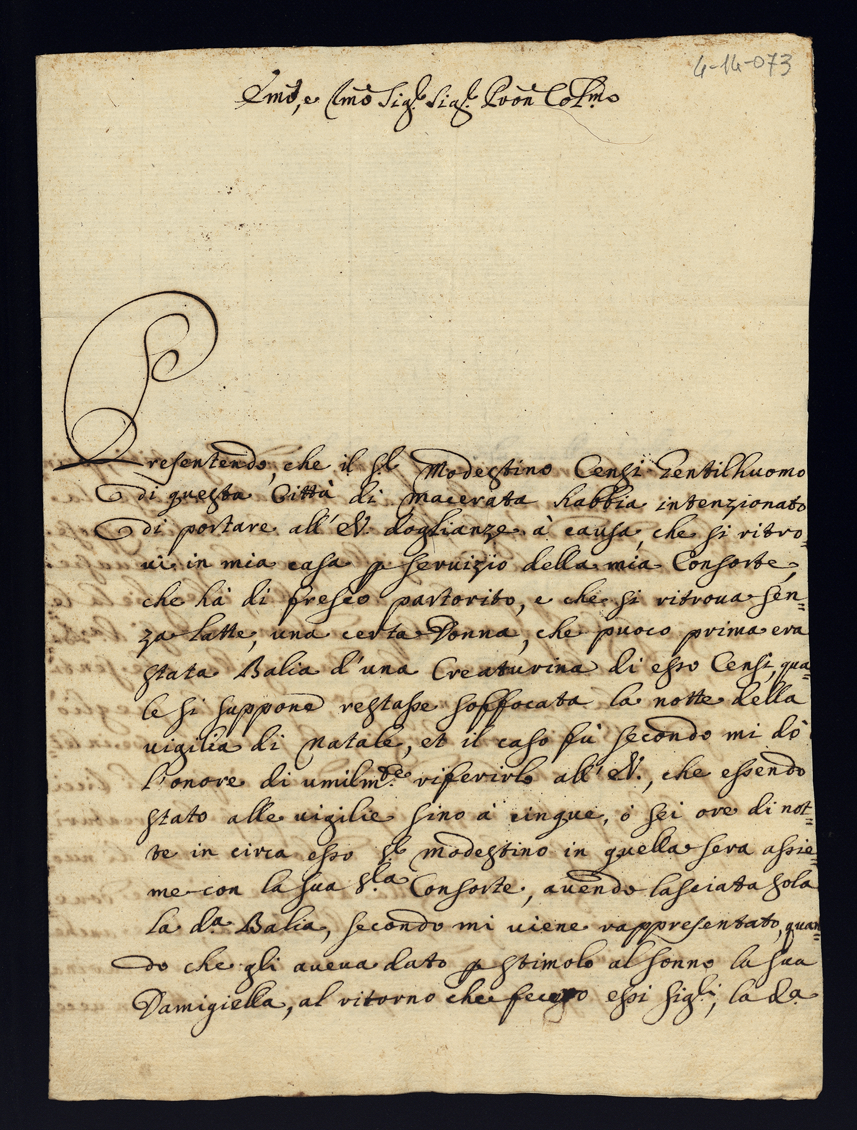 4-14-073
Emo, e Rmo Sigr. Sigr. Pron Colmo
Presentendo, che il Sr. Modestino Censi Gentilhuomo
di questa Città di Macerata habbia intenzionato
di portare all'E.V. doglianze à causa, che si ritro=
vi in mia casa p servizio della mia Consorte,
che hà di fresco partorito, e che si ritrova sen=
za latte, una certa Donna, che puoco prima era
stata Balia d'una Creaturina di esso Censi, qua=
le si suppone restasse soffocata la notte della
vigilia di Natale, et il caso fù secondo mi dò
l'onore di umilmte. riferirlo all'E.V., che essendo
stato alle vigilie sino à cinque, ò sei ore di not=
te in circa esso Sr. Modestino in quella sera assie=
me con la sua Sra. Consorte, avendo lasciata sola
la da. Balia, secondo mi viene rappresentato, quan=
do che gli aveva dato p stimolo al sonno la sua
Damigiella, al ritorno che fecero essi Sigri., la da.